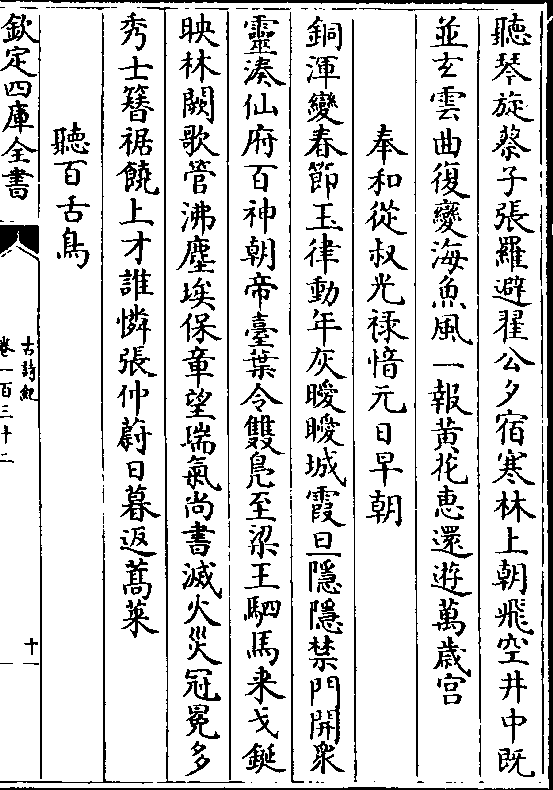 聽琴旋蔡子張羅避翟公夕宿寒林上朝飛空井中既
並玄雲曲復變海魚風一報黄花惠還遊萬歳宫
奉和從叔光禄愔元日早朝
銅渾變春節玉律動年灰曖曖城霞旦隱隱禁門開衆
靈湊仙府百神朝帝臺葉令雙鳬至梁王駟馬来戈鋋
映林闕歌管沸塵埃保章望瑞氣尚書滅火災冠冕多
秀士簮裾饒上才誰憐張仲蔚日暮返蒿萊
聽百舌鳥
欽定四庫全書
古詩紀
卷一百三十二
十